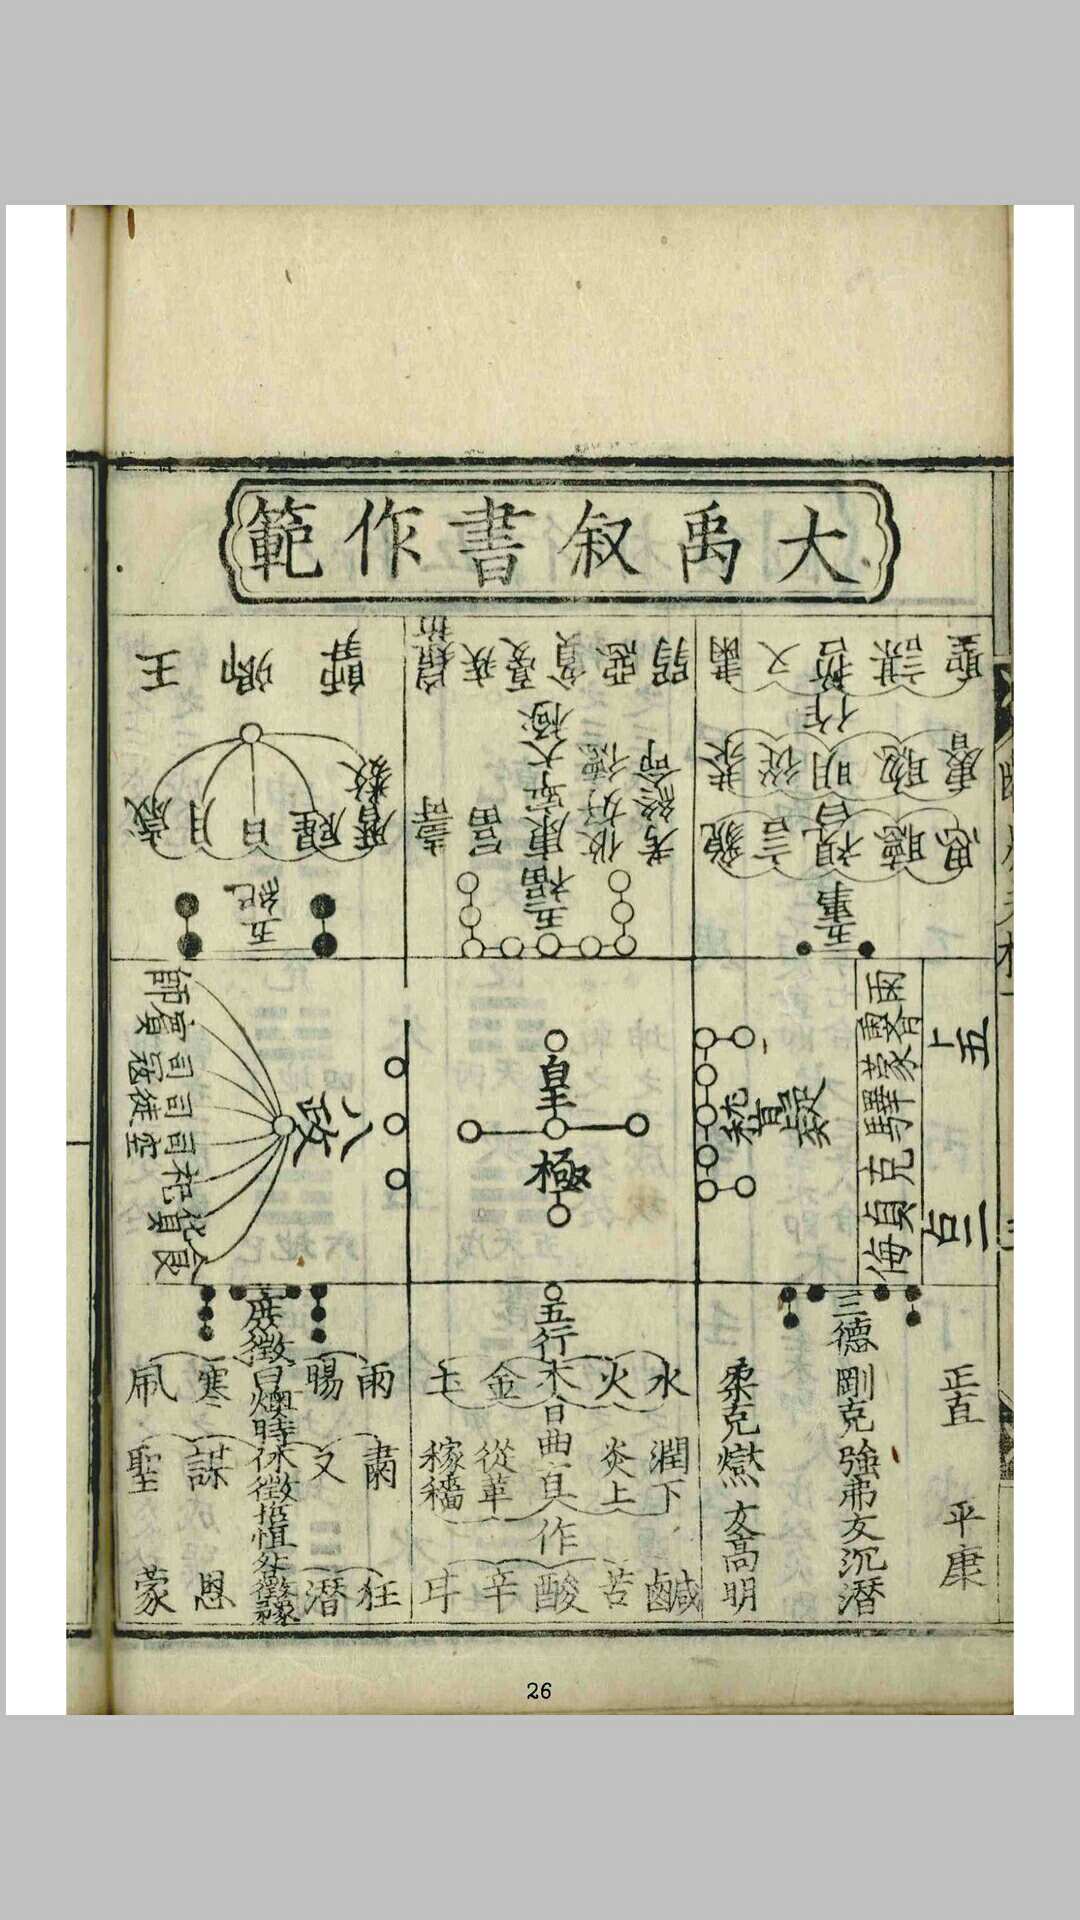 大禹叙書作範
聖謀哲乂肅
作
睿聰明從恭
曰
思聽視言貌
五事
弱惡貧憂疾
考終命
攸好德
康寧
富
壽
五福
師
卿
王
曆數
星辰
日
月
歲
五紀
五上
二占
雨霽蒙驛克貞悔
稽疑
皇極
八政
食貨祀司空司徒司寇賓師
三德
正直
平康
剛克強弗友沉潛
柔克燮友高明
五行
水火木金土
曰
潤下
炎上
曲直
從革
稼穡
作
鹹苦酸辛
庶徵
雨暘燠寒風
曰時
肅乂謀聖
休徵
咎徵
狂蒙
26